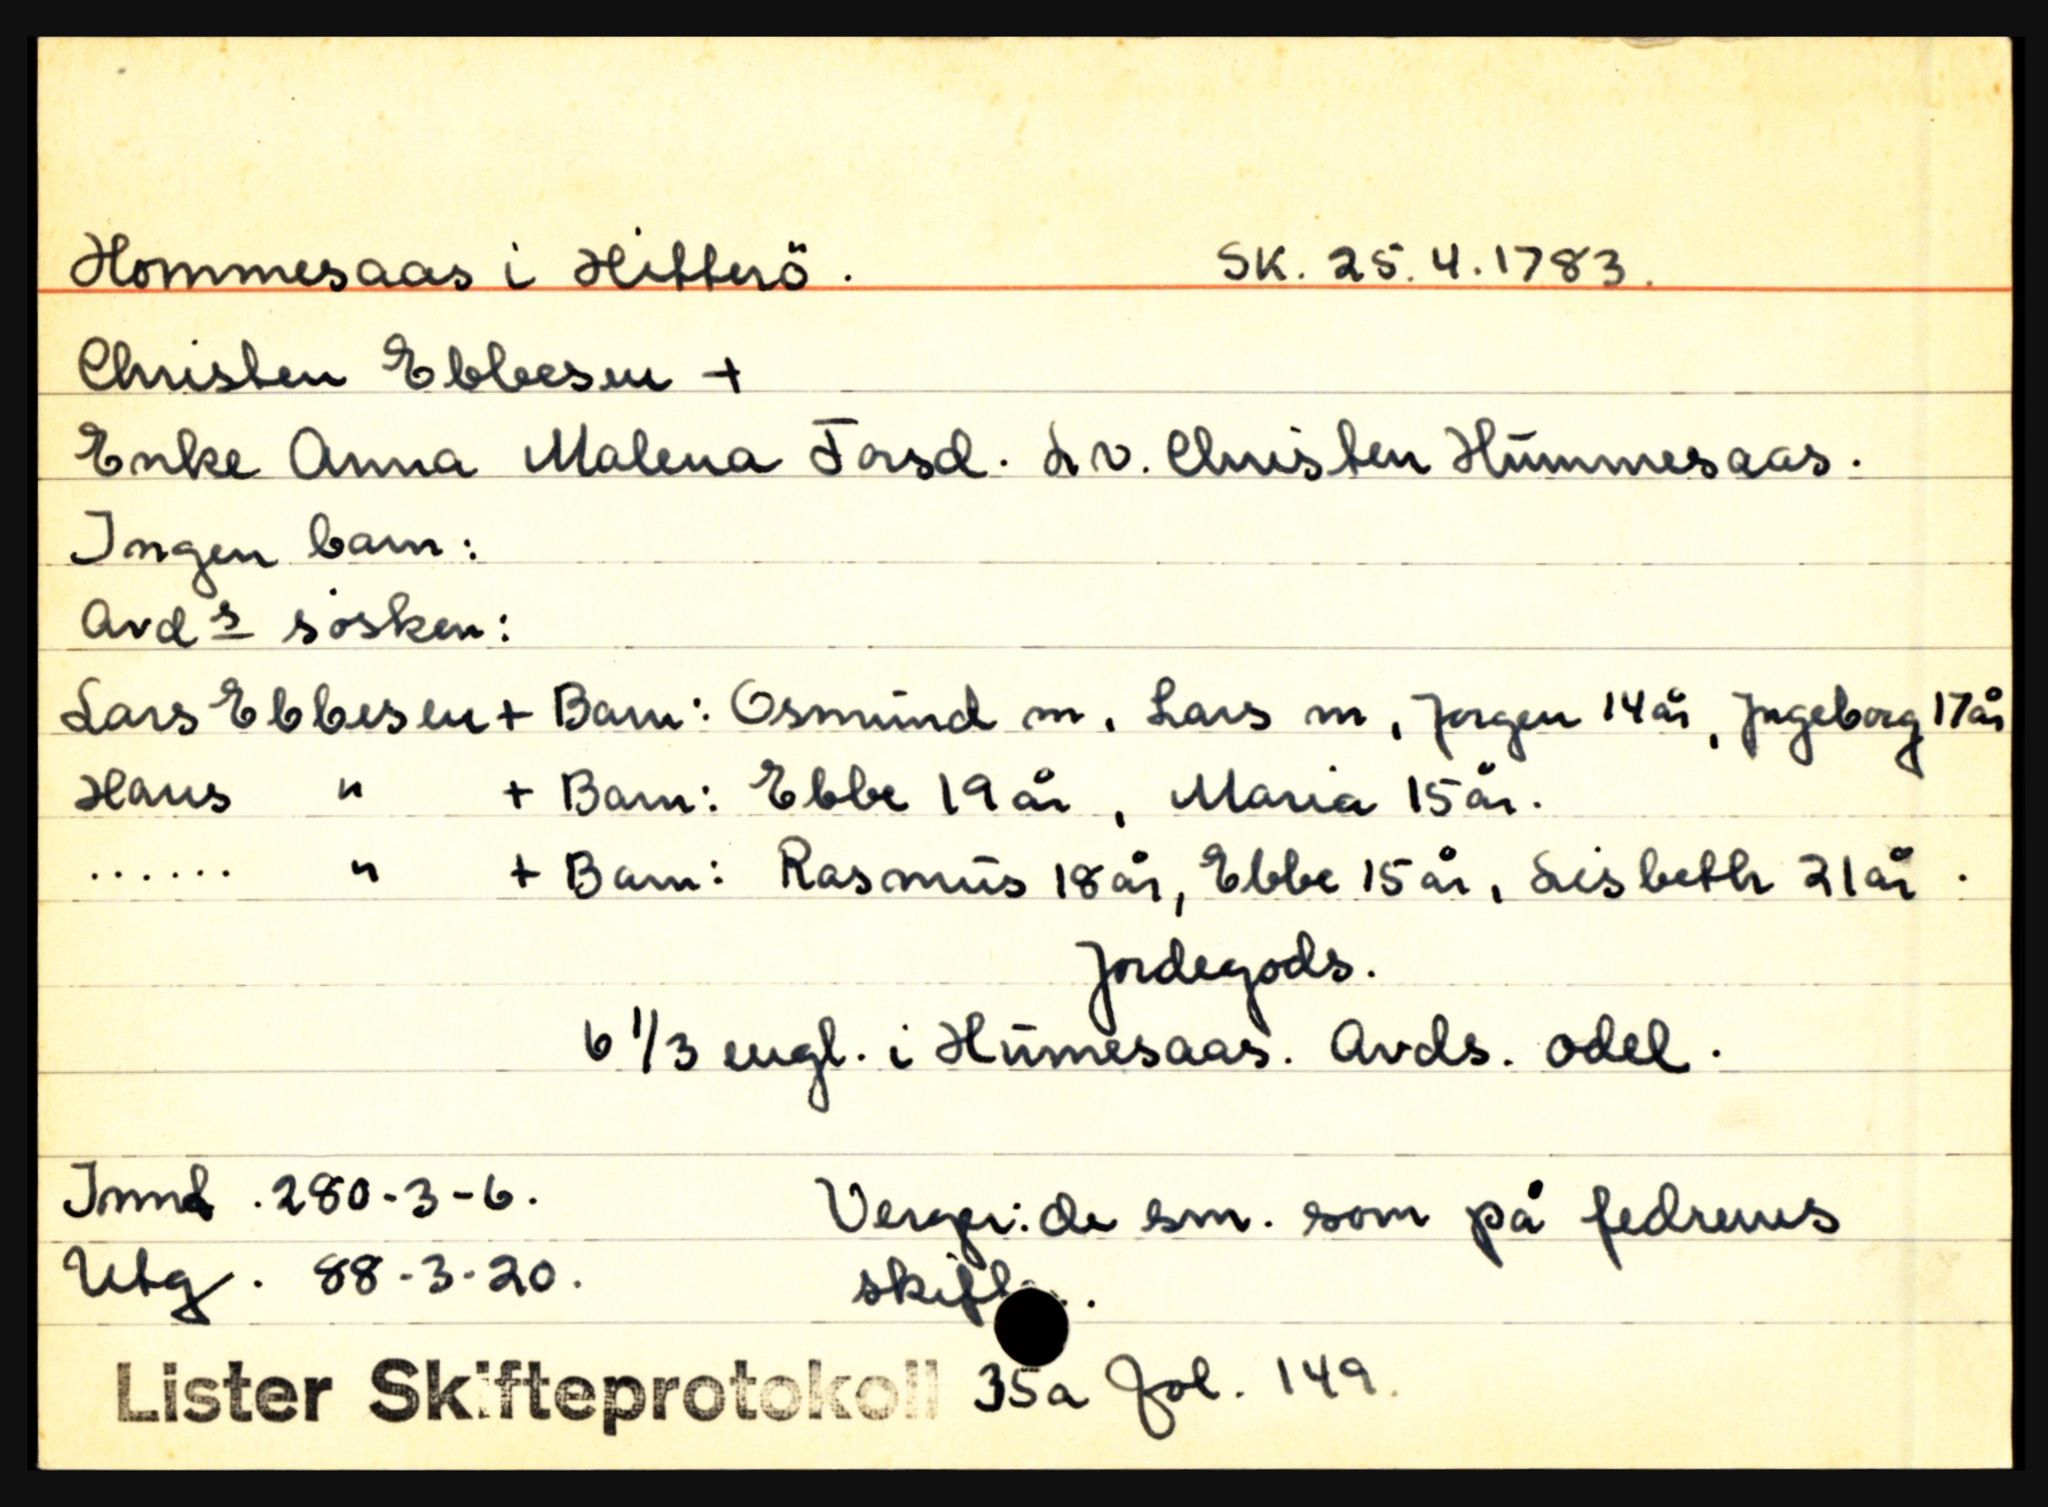 Hommesaas i Hitterö. SK. 25.4.1783.
Christen Ebbesen +
Enke Anna Malena Torsd. Lv. Christen Hummesaas.
Ingen barn:
Avds søsken:
Lars Ebbesen + Barn: Osmund m, Lars m, Jørgen 14 år, Ingeborg 17 år
Hans " + Barn: Ebbe 19 år, Maria 15 år.
...... " + Barn: Rasmus 18 år, Ebbe 15 år, Lisbeth 21 år.
Jordegods.
6 1/3 engl. i Humesaas. Avds. odel.
Innd. 280-3-6. Verger: de sm. som på fedrenes
Utg. 88-3-20. skifte.
Lister Skifteprotokoll 35a fol. 149.